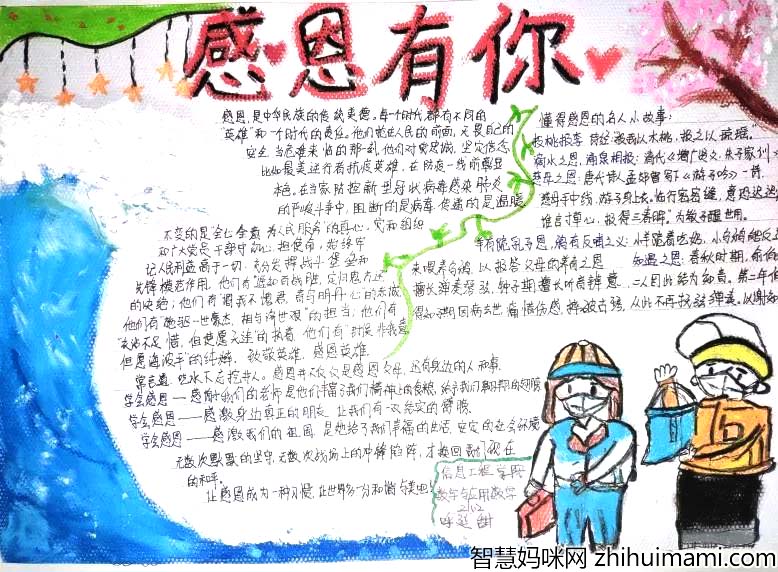 感恩有你
感恩,是中华民族的传统美德。每个时代都有不同的
"英雄"和一个时代的责任。他们就在人民的前面,无畏自己的
安全,当危难来临的那一刻,他们对党忠诚,坚定信念
比如最美逆行者抗疫英雄,在防疫一线前彰显
本色。在当家防控新型冠状病毒感染肺炎
的严峻斗争中,阻断的是病毒,传递的是温暖
不变的是全心全意为人民服务"的真心。党和组织
和广大党员干部守初心,担使命,始终牢
记人民利益高于一切,充分发挥战斗堡垒和
先锋模范作用。他们有
的决绝;他们有
他们有 的担当;他们有
的执着,他们有"时候
但愿海波平"的纯粹。致敬英雄,感恩英雄。
常言道,吃水不忘挖井人。感恩并不仅仅是感恩父母,还有身边的人和事。
学会感恩——感谢我们的老师是他们丰富了我们精神上的食粮,给予我们翱翔的翅膀
学会感恩——感激身边真正的朋友,让我们有一次坚实的臂膀
学会感恩——感激我们的祖国,是她给了我们幸福的生活,安定的社会环境
无数次默默的坚守,无数次战场上的冲锋陷阵,才换回我们现在
的和平。
让感恩成为一种习惯,让世界多一分和谐与美好
懂得感恩的名人小故事:
投桃报李 诗经:投我以木桃,报之以琼瑶。
滴水之恩,涌泉相报:清代《增广贤文·朱子家训》
慈母之恩:唐代诗人孟郊曾写下《游子吟》一诗,
慈母手中线,游子身上衣。临行密密缝,意恐迟迟
谁言寸草心,报得三春晖"为教子醒世用。
羊有跪乳之恩,鸦有反哺之义:小羊跪着吃奶,小乌鸦能反
来喂养乌鸦,以报答父母的养育之恩 知遇之恩:春秋时期,俞伯
擅长弹奏琴弦,钟子期擅长听音辨意,二人因此结为知音。第二年伯
得知子期因病去世,痛惜伤感,摔破古琴,从此不再抚弦弹奏,以谢知
信息工程学院
数学与应用数学
2102
智慧妈咪网 zhihuimami.com